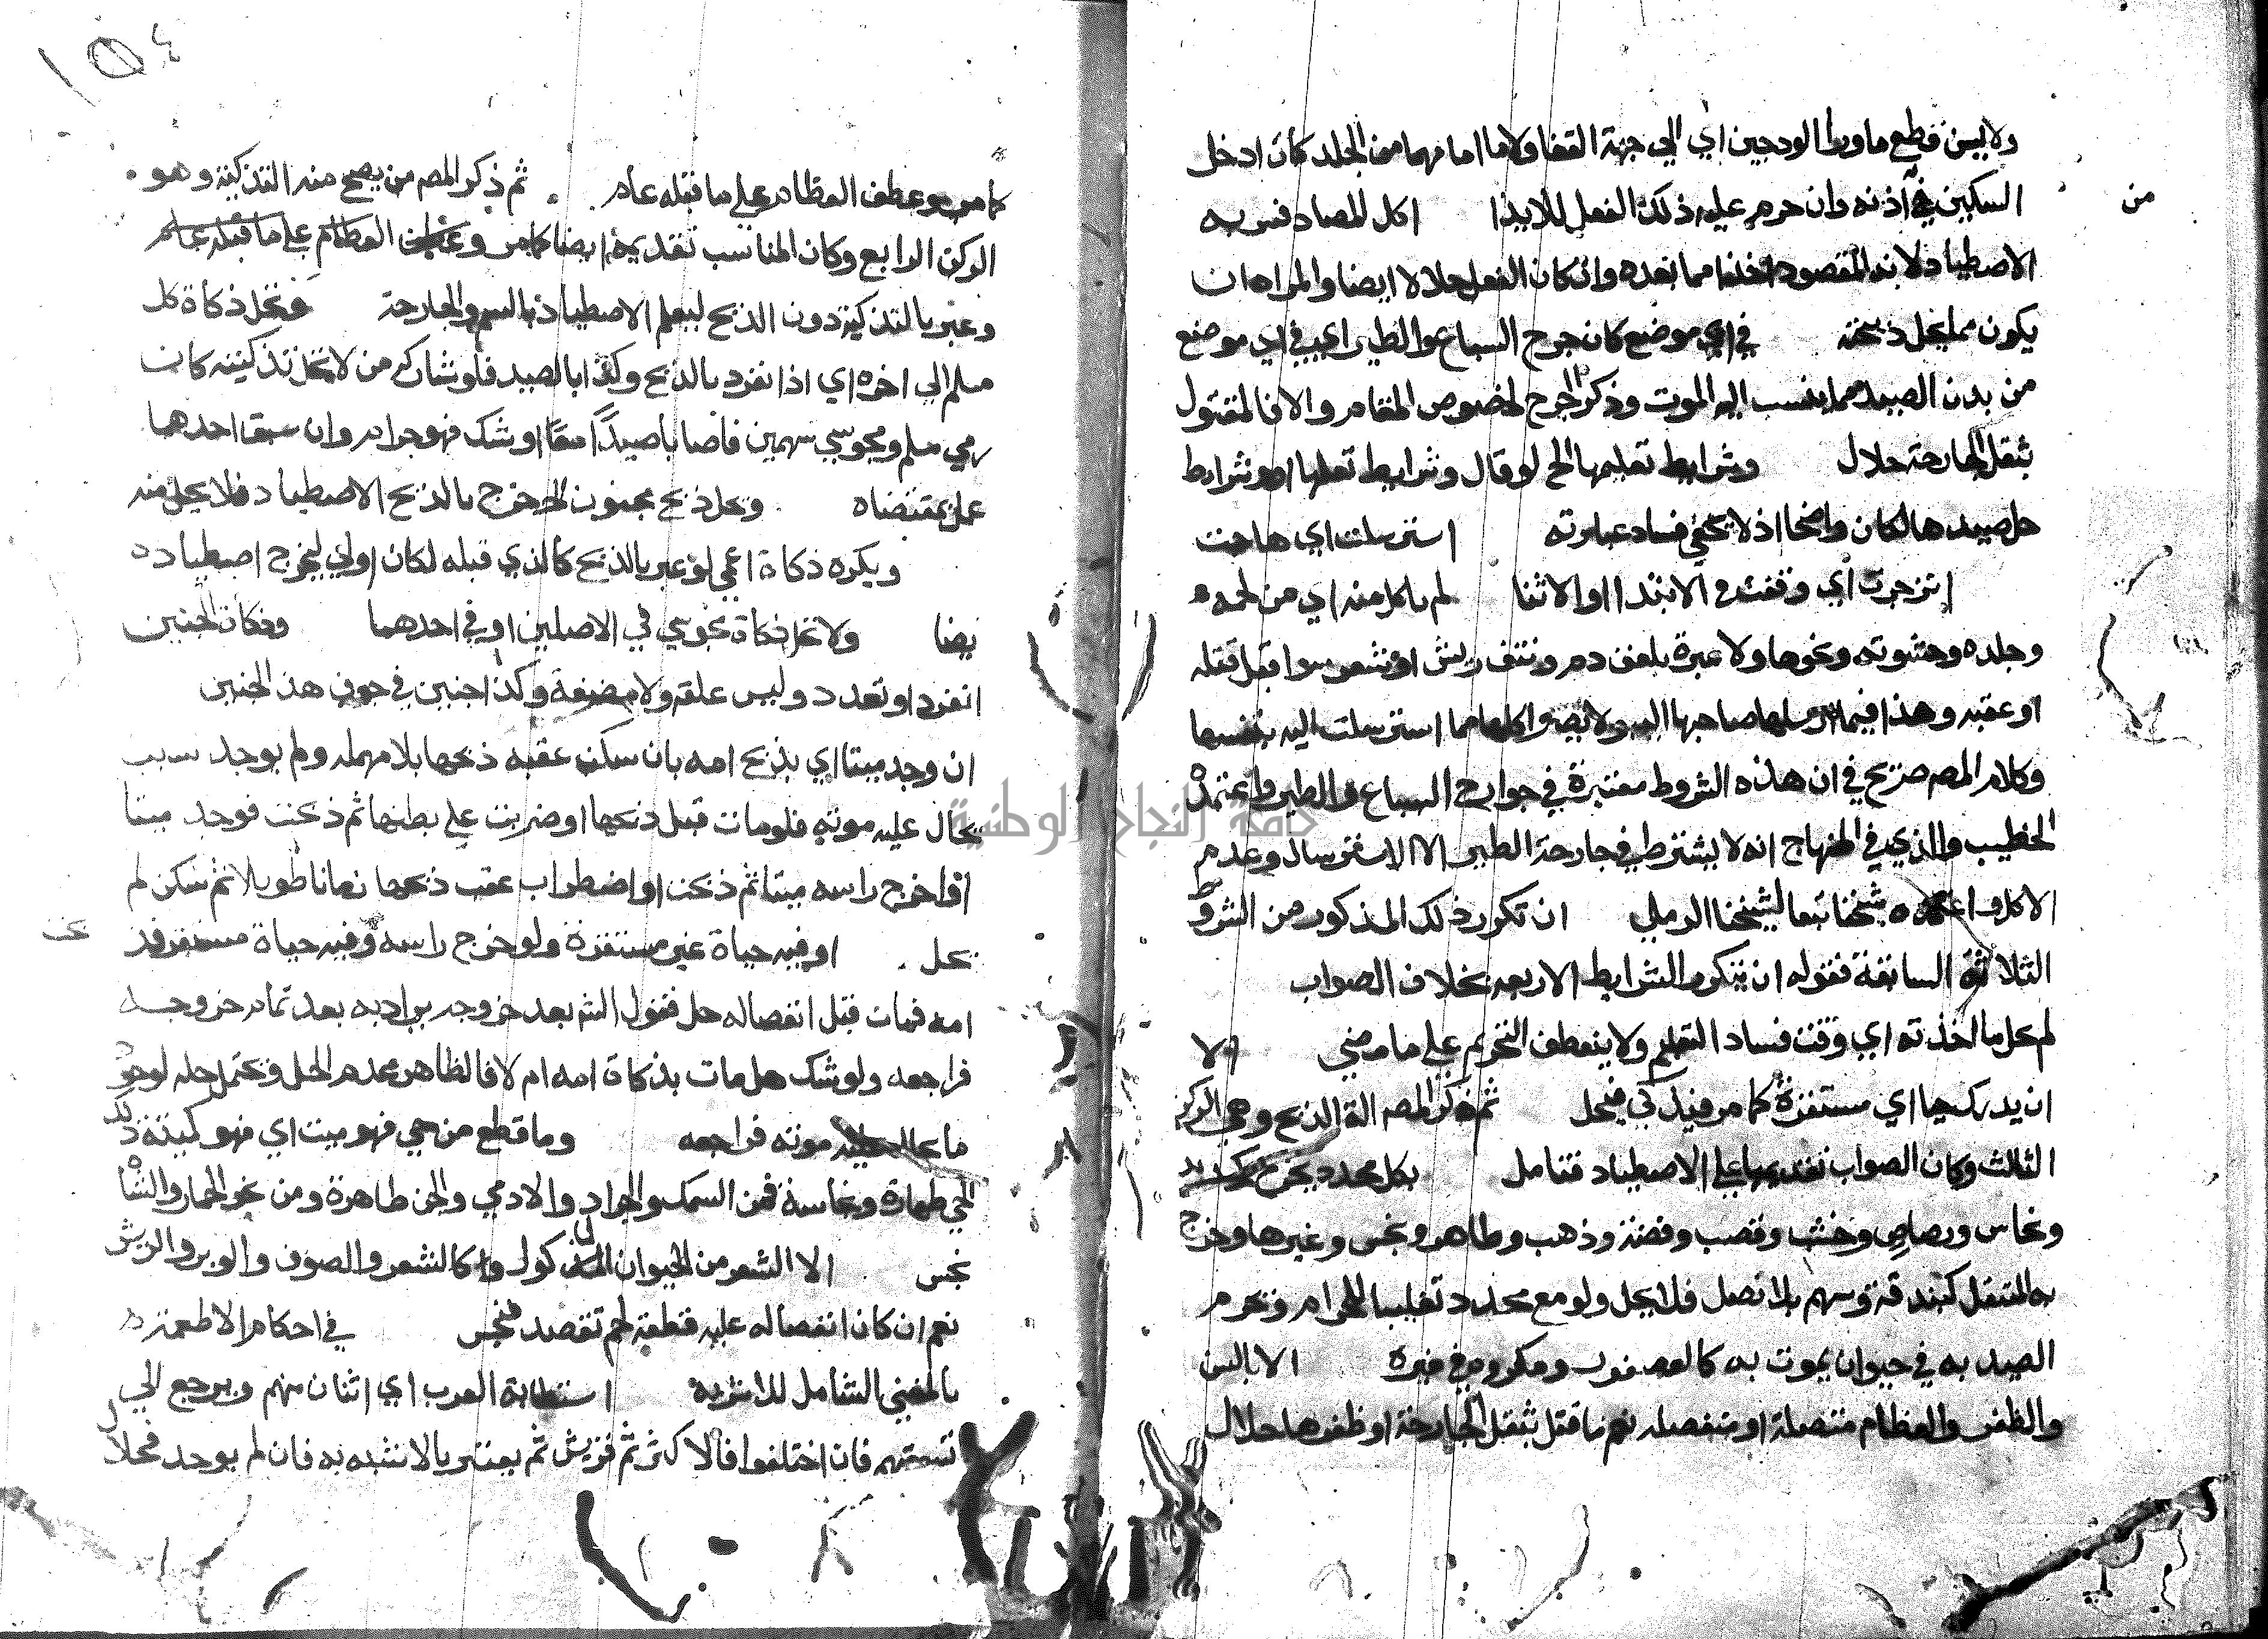 ولا يسن قطع ما ورا الودجين اي الي جهة القفا ولا ما امامهما من الجلد كان ادخل
السكين في اذنه وان حرم عليه ذلك الفعل للايذا اكل المصاد فسر به
من
الاصطياد لانه المقصود اخذا مما بعده وان كان الفعل حلالا ايضا والمراد ان
يكون مما يحل ذبحته في اي موضع كان جرح السباع والطير اي في اي موضع
من بدن الصيد مما ينسب اليه الموت وذكر الجرح لخصوص المقام والا فالمقتول
بثقل الجارحة حلال وشرايط تعليمها الخ لو قال وشرايط تعلمها او وشرايط
حل صيدها لكان واضحا اذ لا يخفي فساد عبارته استرسلت اي هاجت
انزجرت اي وقفت في الابتدا او الاثنا لم ياكل منه اي من لحمه
وجلده وحشوته ونحوها ولا عبرة بلعق دم ونتف ريش او شعر سوا قبل قتله
او عقبه وهذا فيما ارسلها صاحبها اليه ولا يضر اكلها مما استرسلت اليه بنفسها
وكلام المصم صريح في ان هذه الشروط معتبرة في جوارح السباع والطير واعتمده
الخطيب والذي في المنهاج انه لا يشترط في جارحة الطير الا الاسترسال وعدم
الاكل واعتمده شيخنا تبعا لشيخنا الرملي ان تكرر ذلك المذكور من الشروط
الثلاثة السابقة فقوله ان تتكرر الشرايط الاربعه بخلاف الصواب
لم يحل ما اخذته اي وقت فساد التعلم ولا ينعطف التحريم علي ما مضي الا
ان يدرك حيا اي مستقرة كما مر فيذكي فيحل ثم ذكر المصم الة الذبح وهي الركن
الثالث وكان الصواب تقديمها علي الاصطياد فتامل بكل محدد يجرح كحديد
ونحاس ورصاص وخشب وقصب وفضة وذهب وطاهر ونجس وغيرها وخرج
به المثقل كبندقة وسهم بلا نصل فلا يحل ولو مع محدد تغليبا للحرام ويحرم
الصيد به في حيوان يموت به كالعصفور ومكروه في غيره الا بالسن
والظفر والعظام متصلة او منفصله نعم ما قتل بثقل الجارحة او ظفرها حلال
١٥٤
كما مر وعطف العظام علي ما قبله عام ثم ذكر المصم من يصح منه التذكية وهو
الركن الرابع وكان المناسب تقديمه ايضا كما مر وعطف العظام علي ما قبله عام
وعبر بالتذكية دون الذبح ليعلم الاصطياد بالسهم والجارحة وتحل ذكاة كل
مسلم الي اخره اي اذا انفرد بالذبح وكذا بالصيد فلو شاركه من لا تحل تذكيته كان
رمي مسلم ومجوسي سهمين فاصابا صيدا معا او شك فهو حرام وان سبق احدهما
عمل بمقتضاه ويحل ذبح مجنون الخ خرج بالذبح الاصطياد فلا يحل منه
ويكره ذكاة اعمي لو عبر بالذبح كالذي قبله لكان اولي ليخرج اصطياده
ايضا ولا تحل ذكاة مجوسي في الاصلين او في احدهما وذكاة الجنين
انفرد او تعدد وليس علقه ولا مضغة وكذا جنين في جوف هذا الجنين
ان وجد ميتا اي بذبح امه بان سكن عقبه ذبحها بلا مهمله ولم يوجد سبب
يحال عليه موته فلو مات قبل ذبحها او ضربت علي بطنها ثم ذبحت فوجد ميتا
او اخرج راسه ميتا ثم ذبحت او اضطراب عقب ذبحها زمانا طويلا ثم سكن لم
يحل او فيه حياة غير مستقرة ولو خرج راسه وفيه حياة مستقرة
امه فمات قبل انفصاله حل فقول الشم بعد خروجه يراد به بعد تمام خروجه
فراجعه ولو شك هل مات بذكاة امه ام لا فالظاهر عدم الحل ويحتمل حله لوجود
ما يحال عليه موته فراجعه وما قطع من حي فهو ميت اي فهو كميتة ذلك
الحي طهارة ونجاسة فمن السمك والجراد والادمي والجن طاهرة ومن نحو الحمار والشاه
نجس الا الشعر من الحيوان الماكول كالشعر والصوف والوبر والريش
نعم ان كان انفصاله علي قطعة لحم تقصد فنجس في احكام الاطعمة
بالمعني الشامل للاشربة استطابة العرب اي اثنان منهم ويرجع الي
تسميتهم فان اختلفوا فالاكثر ثم قريش ثم يعتبر بالاشبه به فان لم يوجد فحلال